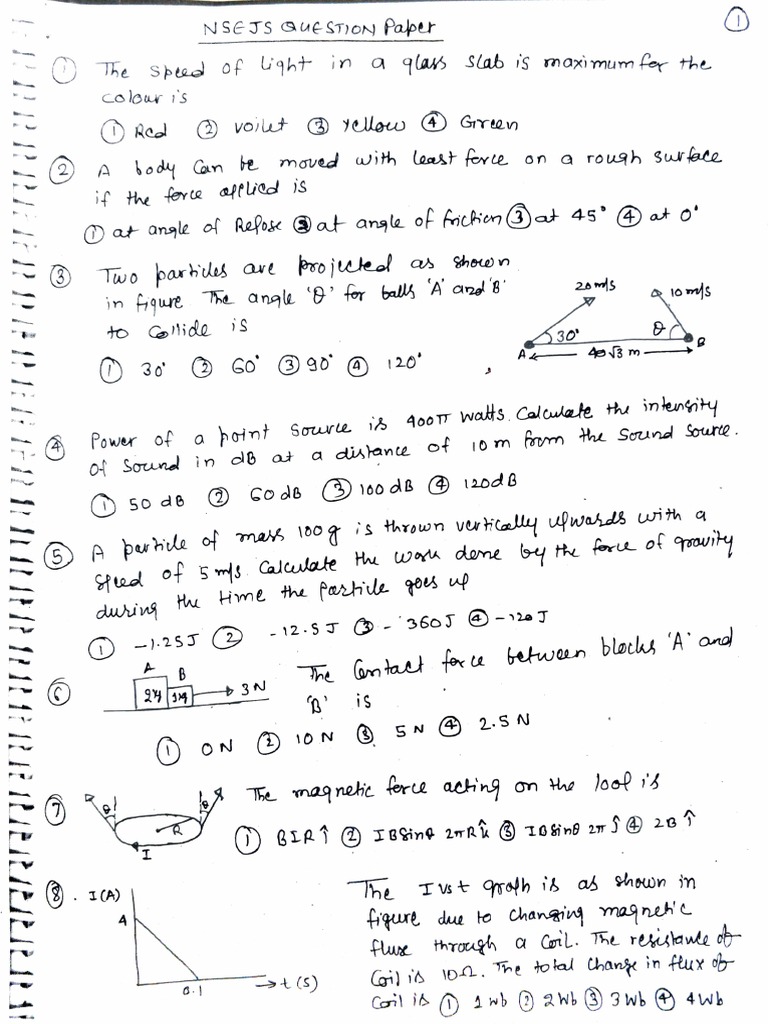 NSEJS QUESTION Paper
①
① The speed of light in a glass slab is maximum for the
colour is
① Red ② voilet ③ Yellow ④ Green
② A body can be moved with least force on a rough surface
if the force applied is
① at angle of Repose ② at angle of friction ③ at 45° ④ at 0°
③ Two particles are projected as shown
in figure The angle 'θ' for balls 'A' and 'B'
to collide is
① 30° ② 60° ③ 90° ④ 120°
20 m/s
10 m/s
30°
θ
A
B
40√3 m
④ Power of a point source is 400π watts. Calculate the intensity
of sound in dB at a distance of 10 m from the sound source.
① 50 dB ② 60 dB ③ 100 dB ④ 120 dB
⑤ A particle of mass 100g is thrown vertically upwards with a
speed of 5 m/s. Calculate the work done by the force of gravity
during the time the particle goes up
① -1.25J ② -12.5J ③ -360J ④ -120J
⑥ A
B
3 N
The Contact force between blocks 'A' and
'B' is
① 0N ② 10N ③ 5N ④ 2.5N
⑦ θ
θ
R
I
The magnetic force acting on the loop is
① BIR î ② IB sinθ 2πR k̂ ③ IB sinθ 2π ĵ ④ 2B î
⑧. I(A)
4
0.1
t(s)
The I vs t graph is as shown in
figure due to changing magnetic
flux through a coil. The resistance of
coil is 10Ω. The total change in flux of
coil is ① 1 wb ② 2 Wb ③ 3 Wb ④ 4 Wb